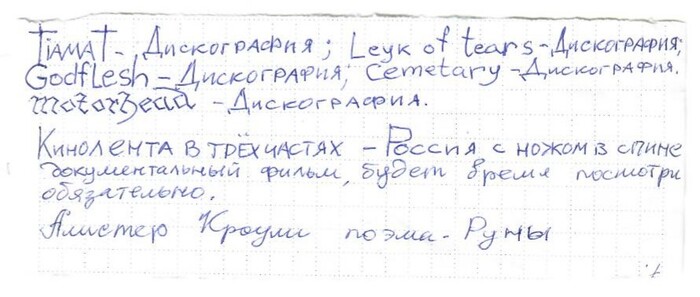 Tiamat - Дискография; Leyk of tears - Дискография;
Godflesh - Дискография; Cemetary - Дискография.
motorhead - Дискография.
Кинолента в трёх частях - Россия с ножом в спине
документальный фильм, будет время посмотри
обязательно.
Алистер Кроули поэма - Руны